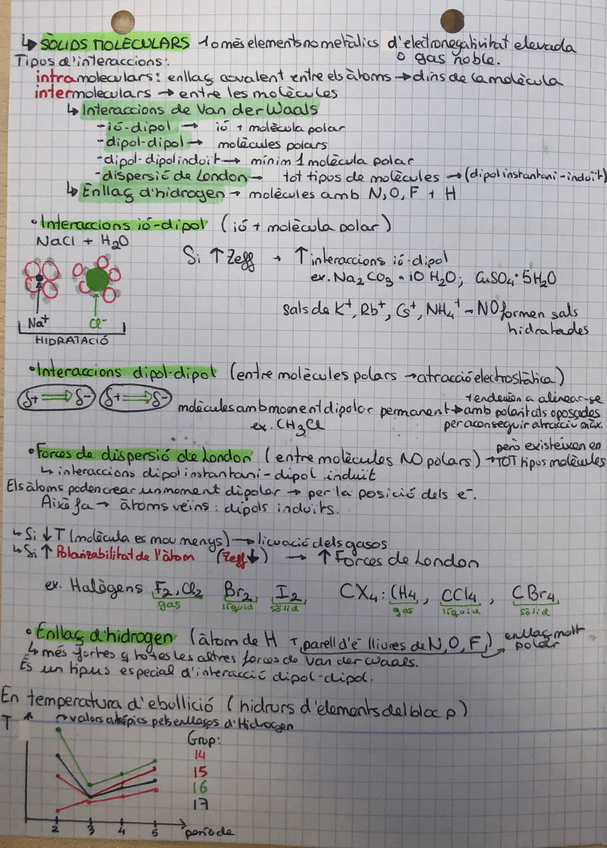 ↳ SÒLIDS MOLÈCULARS 1 o més elements no metàlics d'electronegativitat elevada
o gas noble.
Tipos d'interaccions:
intramoleculars: enllaç covalent entre els àtoms → dins de la molècula
intermoleculars → entre les molècules
↳ Interaccions de Van der Waals
- ió-dipol → ió + molècula polar
- dipol-dipol → molècules polars
- dipol-dipol induït → mínim 1 molècula polar
- dispersió de London → tot tipus de molècules → (dipol instantani-induït)
↳ Enllaç d'hidrogen → molècules amb N, O, F + H
• Interaccions ió-dipol (ió + molècula polar)
NaCl + H2O
Si ↑ Zeff → ↑ interaccions ió-dipol
ex. Na2CO3 · 10 H2O; CuSO4 · 5H2O
Na+ Cl-
HIDRATACIÓ
sals de K+, Rb+, Cs+, NH4+ → NO formen sals
hidratades
• Interaccions dipol-dipol (entre molècules polars → atracció electrostàtica)
δ+ δ- δ+ δ-
molècules amb moment dipolar permanent → tendeixen a alinear-se
amb polaritats oposades
per aconseguir atracció màx.
ex. CH3Cl
• Forces de dispersió de London (entre molècules NO polars) → però existeixen en
TOT tipus molècules
↳ interaccions dipol instantani - dipol induït
Els àtoms poden crear un moment dipolar → per la posició dels e-.
Això fa → àtoms veïns: dipols induïts.
↳ Si ↓ T (molècula es mou menys) → licuació dels gasos
↳ Si ↑ Polarizabilitat de l'àtom (Zeff ↓) → ↑ Forces de London
ex. Halògens F2, Cl2 Br2 I2 CX4: CH4, CCl4, CBr4
gas líquid sòlid gas líquid sòlid
• Enllaç d'hidrogen (àtom de H + parell d'e- lliures de N, O, F) enllaç molt
polar
↳ més fortes q totes les altres forces de Van der Waals.
És un tipus especial d'interacció dipol-dipol.
En temperatura d'ebullició (hidrurs d'elements del bloc p)
T → valors atípics pels enllaços d'Hidrogen
Grup:
14
15
16
17
2 3 4 5 període